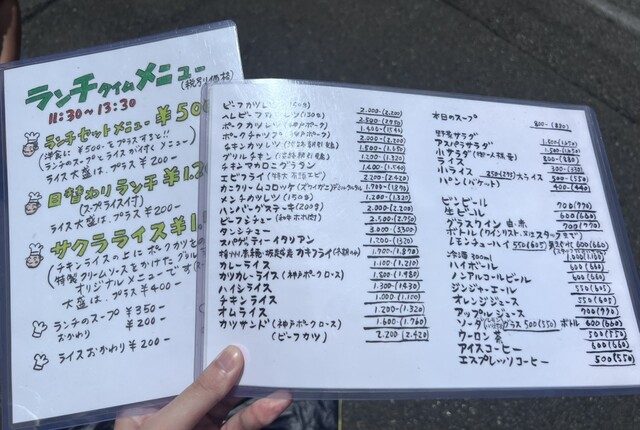 ランチタイムメニュー
(税別価格)
11:30~13:30
ランチセットメニュー ¥500
(洋食に¥500-をプラスすると!!
ランチのスープとライスが付くメニュー)
ライス大盛は、プラス¥200-
日替わりランチ ¥1.2
(スープライス付)
ライス大盛は プラス¥200-
サクラライス ¥1.
(チキンライスの上にポークカツをの
特製クリームソースをかけたグル
オリジナルメニューです
大盛は、プラス¥400-
ランチのスープ ¥350-
おかわり ¥200-
ライスおかわり¥200-
ビーフカツレツ 2.000-(2.200)
ヘレビーフカツレツ
ポークカツレツ(神戸ポーク) 1.400-(1.540)
ポークチャップ(神戸ポーク) 2.000-(2.200)
チキンカツレツ 1.500-(1.650)
グリルチキン 1.200-(1.320)
チキンマカロニグラタン 1.400-(1.540)
エビフライ 2.200-(2.420)
カニクリームコロッケ(ズワイガニ) 1.700-(1.870)
メンチカツレツ(150g) 1.200-(1.320)
ハンバーグステーキ(200g) 2.000-(2.200)
ビーフシチュー 2.500-(2.750)
タンシチュー 3.000-(3300)
スパゲティーイタリアン 1.200-(1320)
カキフライ 1.700-(1.870)
カレーライス 1.100-(1.210)
カツカレーライス(神戸ポークロース) 1.800-(1.980)
ハイシライス 1.300-(1.430)
チキンライス 1.000-(1.100)
オムライス 1.200-(1.320)
カツサンド(神戸ポークロース) 1.600-(1.760)
(ビーフカツ) 2.200(2.420)
本日のスープ 800-(880)
野菜サラダ
アスパラサラダ
カニサラダ
ライス 300-(330)
小ライス 250(275) 大ライス
パン(バケット) 400-(440)
ビンビール 700(770)
生ビール 600(660)
グラスワイン 白・赤 700(770)
ボトル
レモンチューハイ 550(605)
冷酒300ml 1.000(1.100)
ハイボール 600(660)
ノンアルコールビール 600(660)
ジンジャーエール 550(605)
オレンジジュース 550(605)
アップルジュース 700(770)
ソーダ グラス500(550) ボトル 600(660)
ウーロン茶 500(550)
アイスコーヒー 600(660)
エスプレッソコーヒー 500(550)